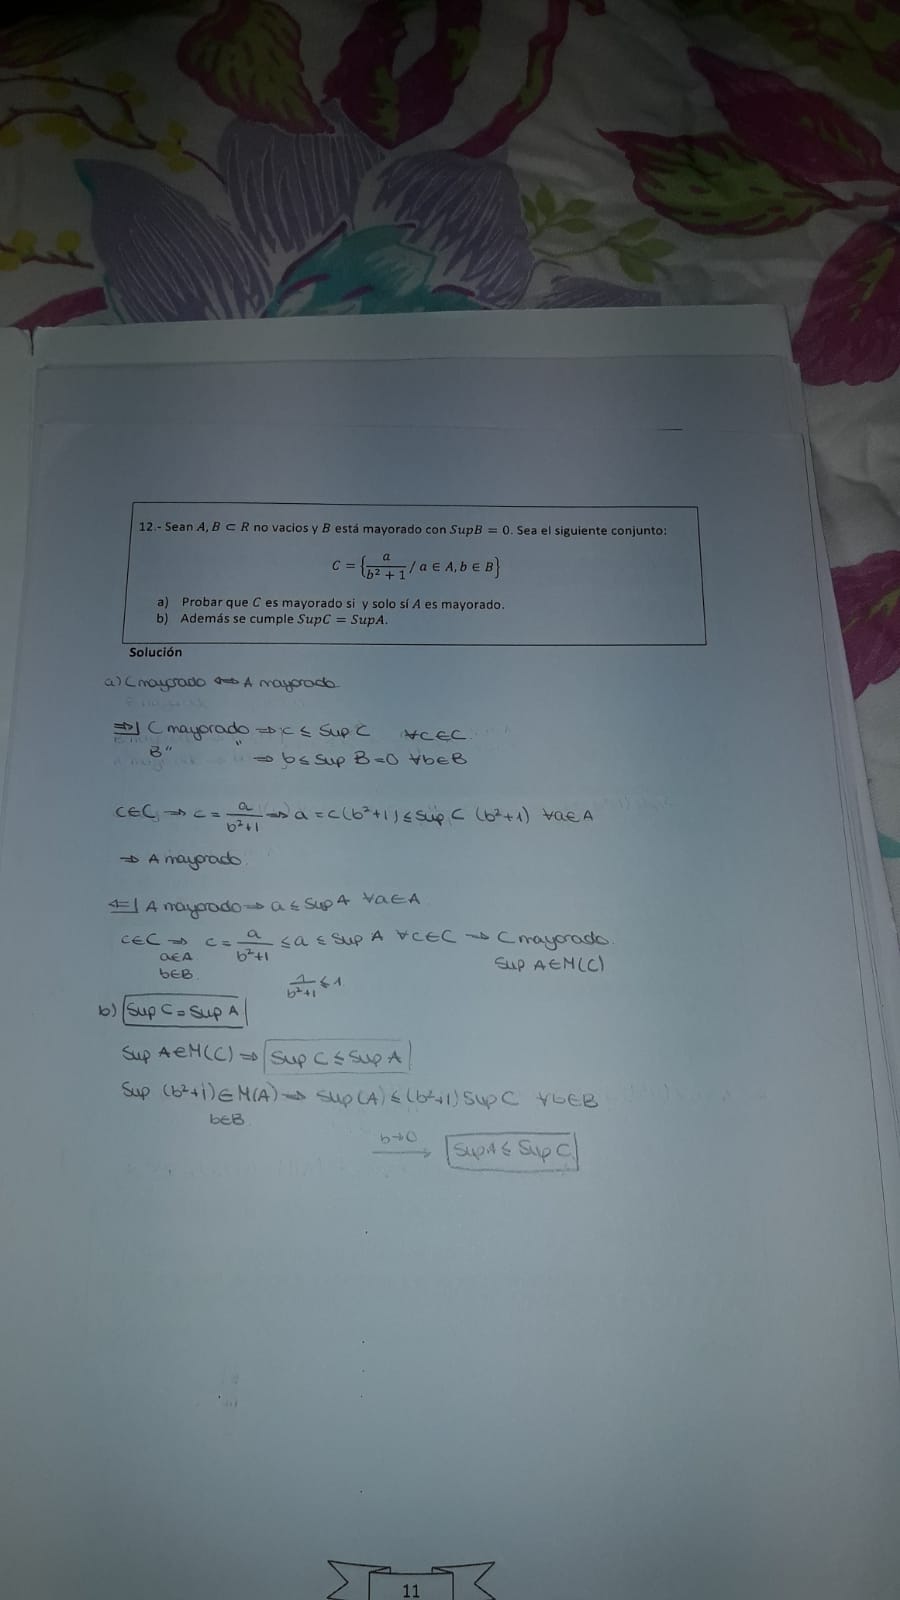 12.- Sean A, B ⊂ R no vacios y B está mayorado con SupB = 0. Sea el siguiente conjunto:
C = {a/(b² + 1) / a ∈ A, b ∈ B}
a) Probar que C es mayorado si y solo sí A es mayorado.
b) Además se cumple SupC = SupA.
Solución
a) C mayorado ⟺ A mayorado
⇒| C mayorado ⇒ c ≤ Sup C ∀c∈C
B " " ⇒ b ≤ Sup B=0 ∀b∈B
c∈C ⇒ c = a/(b²+1) ⇒ a = c(b²+1) ≤ Sup C (b²+1) ∀a∈A
⇒ A mayorado
⇐| A mayorado ⇒ a ≤ Sup A ∀a∈A
c∈C ⇒ c = a/(b²+1) ≤ a ≤ Sup A ∀c∈C ⇒ C mayorado.
a∈A
b∈B
Sup A∈M(C)
1/(b²+1) ≤ 1
b) Sup C = Sup A
Sup A∈M(C) ⇒ Sup C ≤ Sup A
Sup (b²+1)∈M(A) ⇒ Sup(A) ≤ (b²+1) Sup C ∀b∈B
b∈B
b→0 → Sup A ≤ Sup C
11